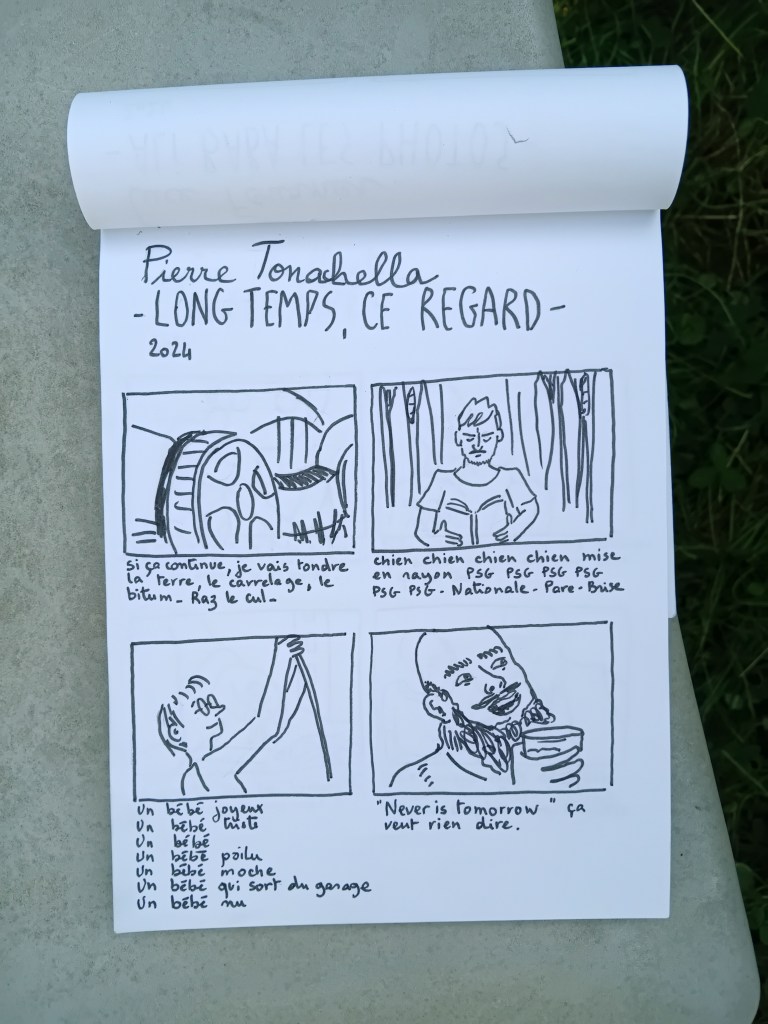 Pierre Tonachella
- LONG TEMPS, CE REGARD -
2024
si ça continue, je vais tondre
la terre, le carrelage, le
bitum_ Raz le cul_
chien chien chien chien mise
en rayon PSG PSG PSG PSG
PSG PSG - Nationale - Pare-Brise
Un bébé joyeux
Un bébé triste
Un bébé
Un bébé poilu
Un bébé moche
Un bébé qui sort du garage
Un bébé nu
"Never is tomorrow" ça
veut rien dire.